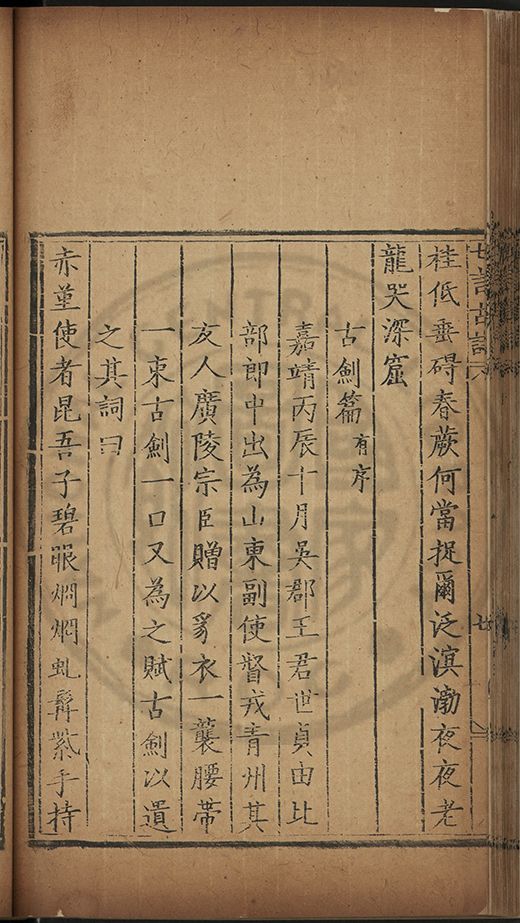 七言古詩六
廿
桂低垂碍春蕨何當捉爾泛溟渤夜夜老
龍哭深窟
古劍篇有序
嘉靖丙辰十月吳郡王君世貞由比
部郎中出為山東副使督戎青州其
友人廣陵宗臣贈以豸衣一襲腰帶
一束古劍一口又為之賦古劍以遺
之其詞曰
赤堇使者昆吾子碧眼烱烱虬髯紫手持